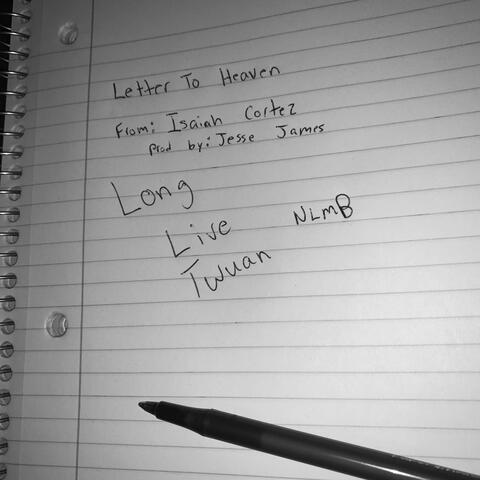 Letter To Heaven
From: Isaiah Cortez
Prod by: Jesse James
Long
Live NLMB
Twuan